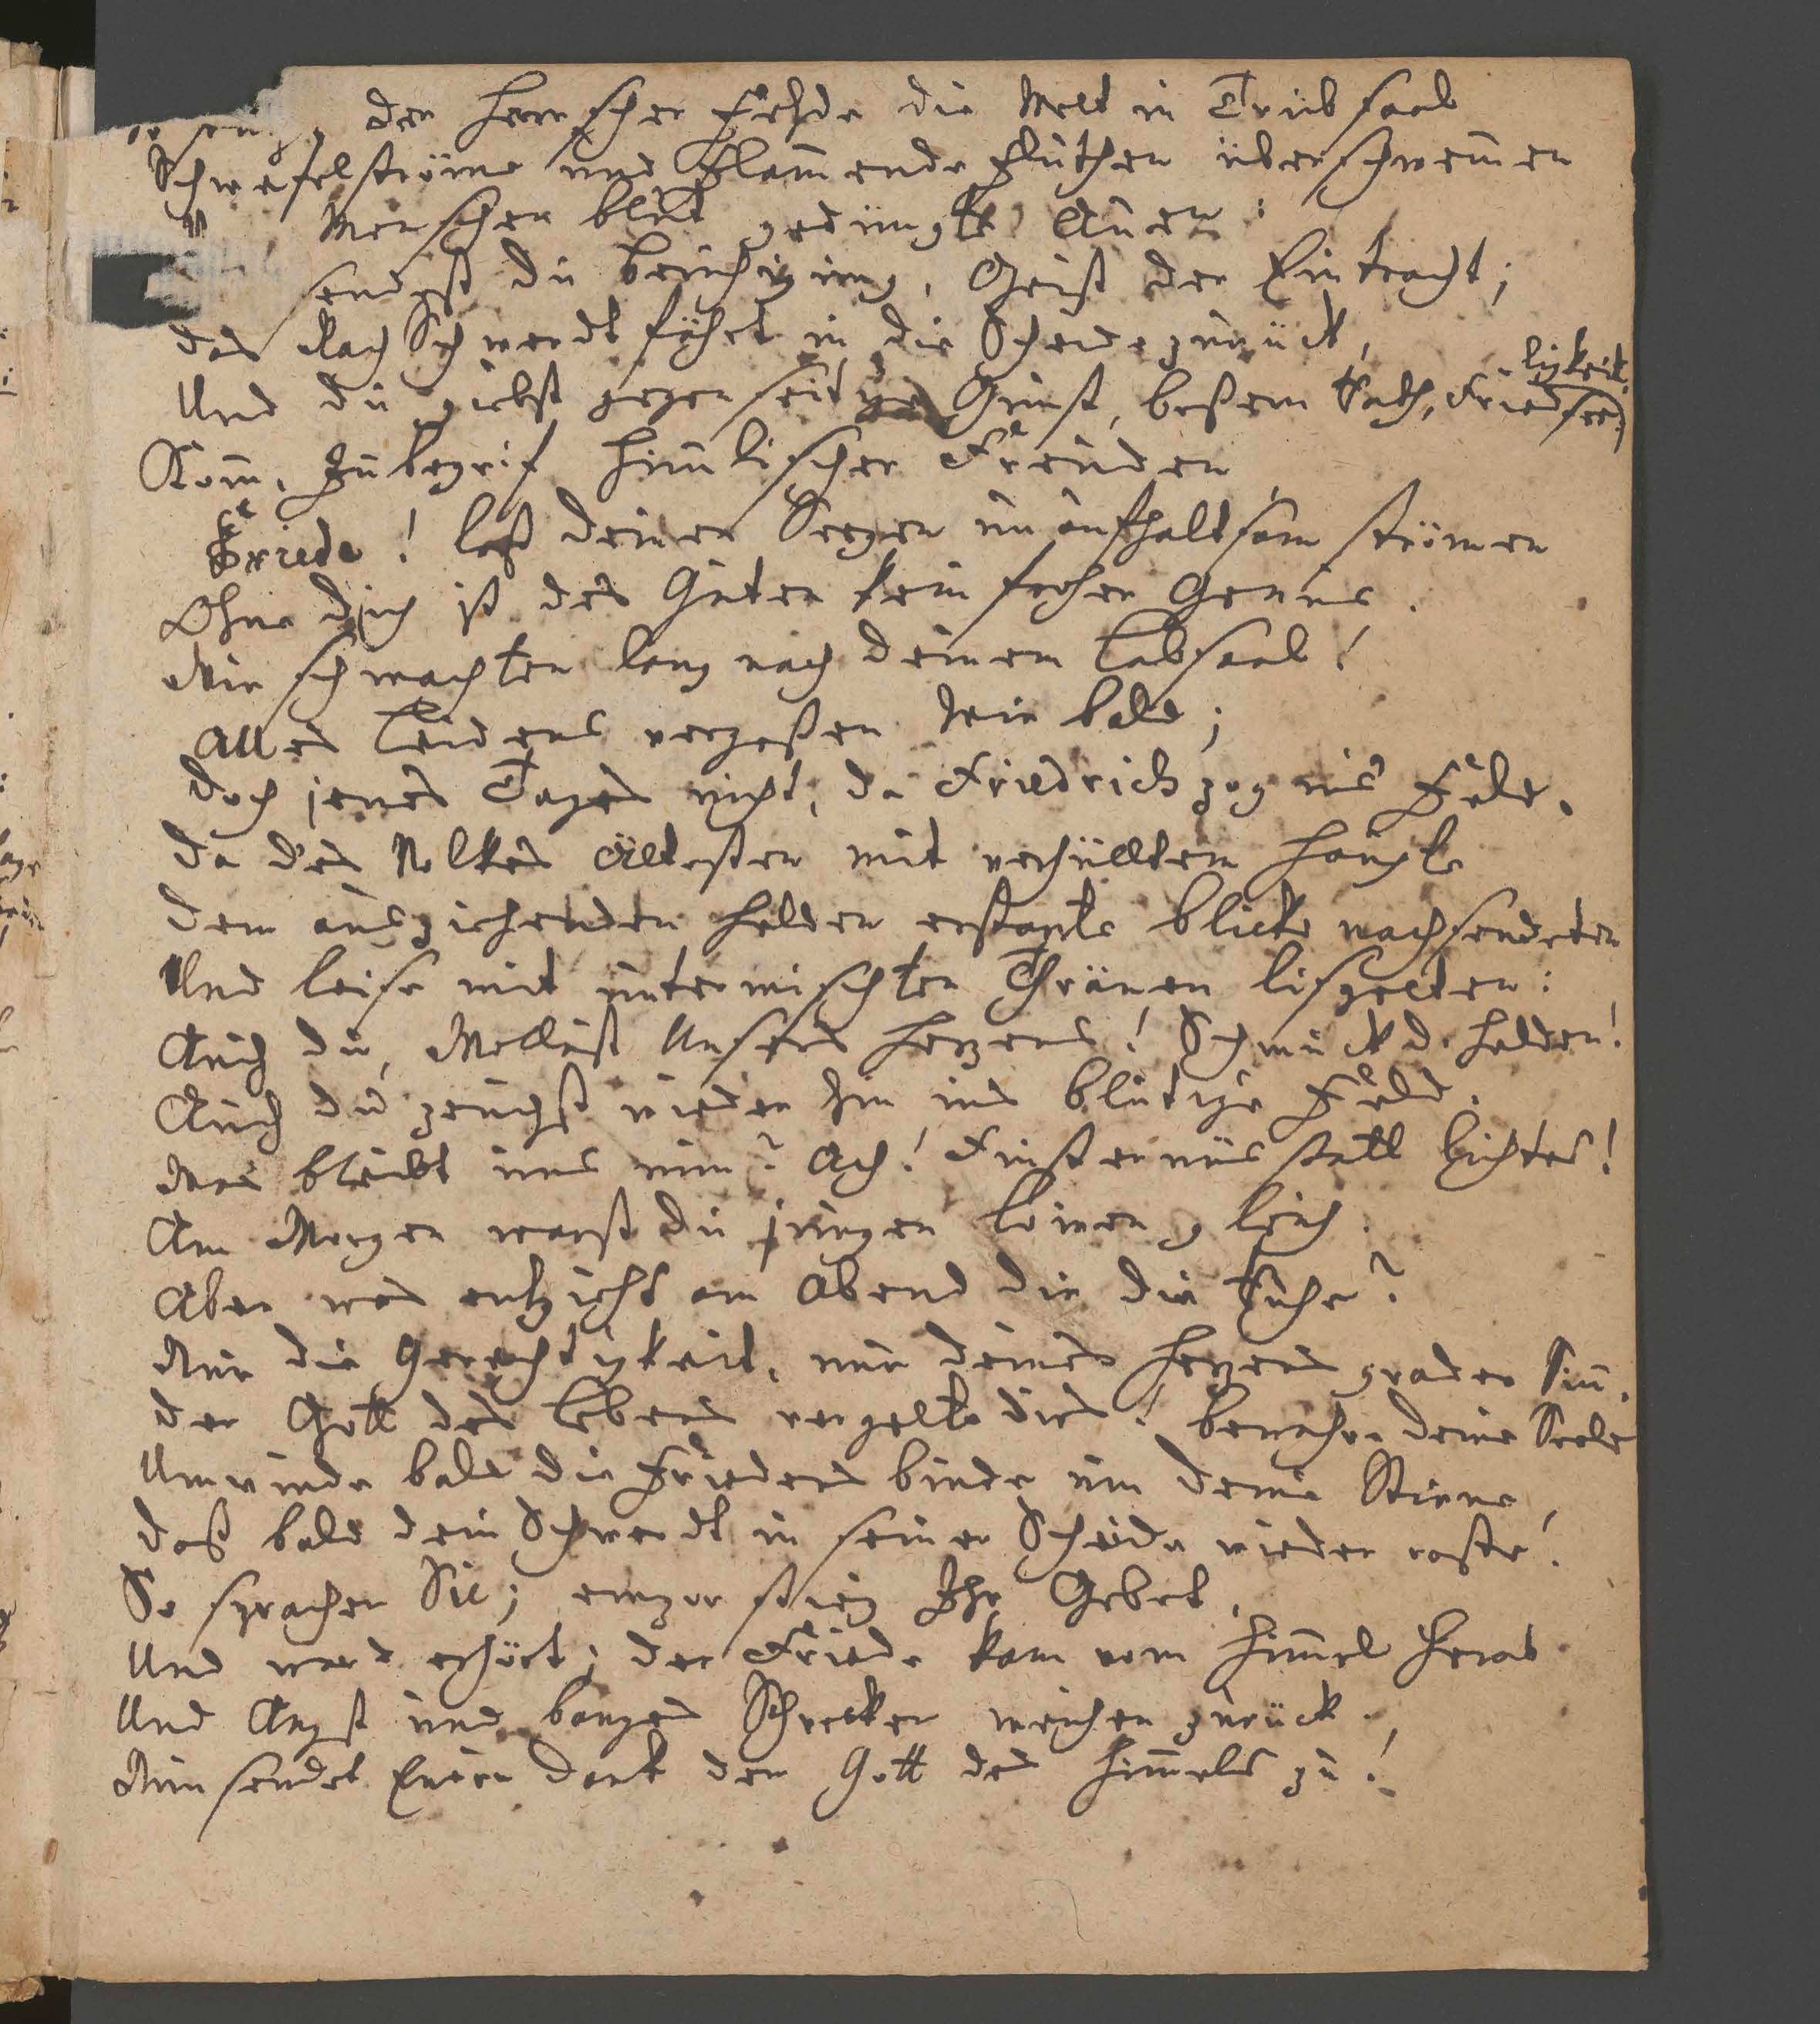 der Herrscher Fehde die Welt in Trübsaal
Schwefelströme und Flam̄ende Fluthen überschwem̄en
Menschen blut gedüngte Auen:
sendest du Beruhigung, Geist der Eintracht;
das Rach Schwerdt fährt in die Scheide zurück,
Und du giebst gegenseitge Gunst, beßern Rath, Friedsee-
ligkeit.
Kom̄, Inbegrif him̄lischer Freuden
Friede! laß deinen Seegen unaufhaltsam strömen
Ohne dich ist des Guten kein froher Genus.
Wir schmachten lang nach deinem Labsaal!
Alles Leidens vergeßen wir bald;
Doch jenes Tages nicht, da Friedrich zog ins Feld.
Da des Volkes Ältesten mit verhülltem Haupte
Dem ausziehenden Helden erstarte Blicke nachsendeten
Und leise mit untermischten Thränen lispelten:
Auch du, Wollust Unsers Herzens! Schmuck d. Helden!
Auch du zeuchst wieder hin ins blutige Feld.
Was bleibt uns nun? Ach! Finsternis statt Lichtes!
Am Morgen warst du jungen Löwen gleich.
Aber was entzieht am Abend dir die Ruhe?
Nur die Gerechtigkeit, nur deines Herzens grader Sin̄.
Der Gott des Lebens vergelte dirs! bewahre deine Seele
Umwinde bald die Friedens binde um deine Stirne,
Daß bald dein Schwerdt in seiner Scheide wieder raste!
So sprachen Sie; empor stieg Ihr Gebet,
Und ward erhört; der Friede kam vom Him̄el herab
Und Angst und banges Schrecken weichen zurück.
Nun sendet Euren Dank dem Gott des Him̄els zu!